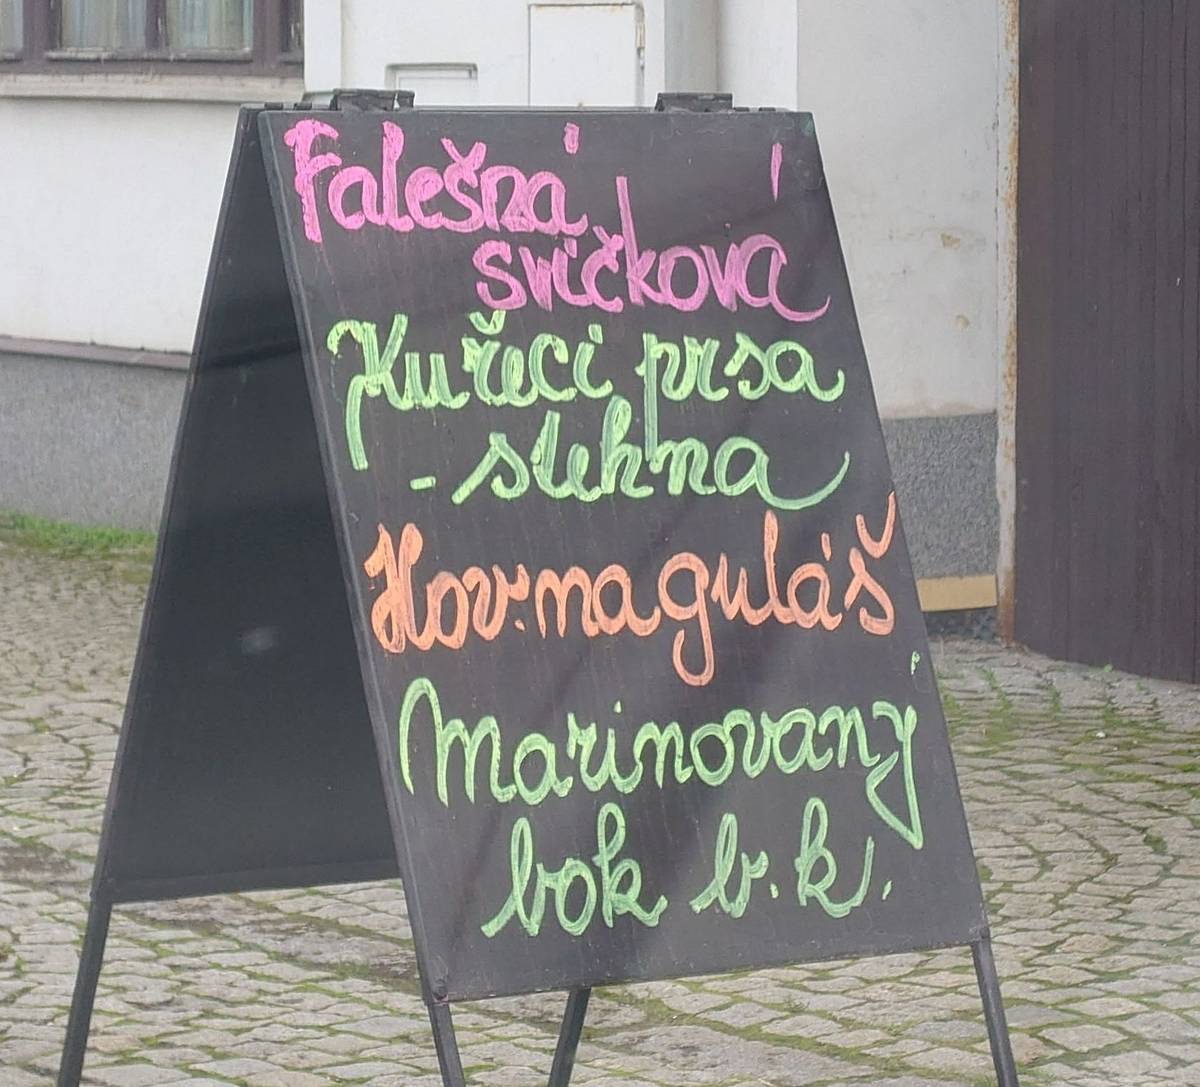 Falešná
svíčková
Kuřecí prsa
- stehna
Hov. na guláš
Marinovaný
bok b. k.